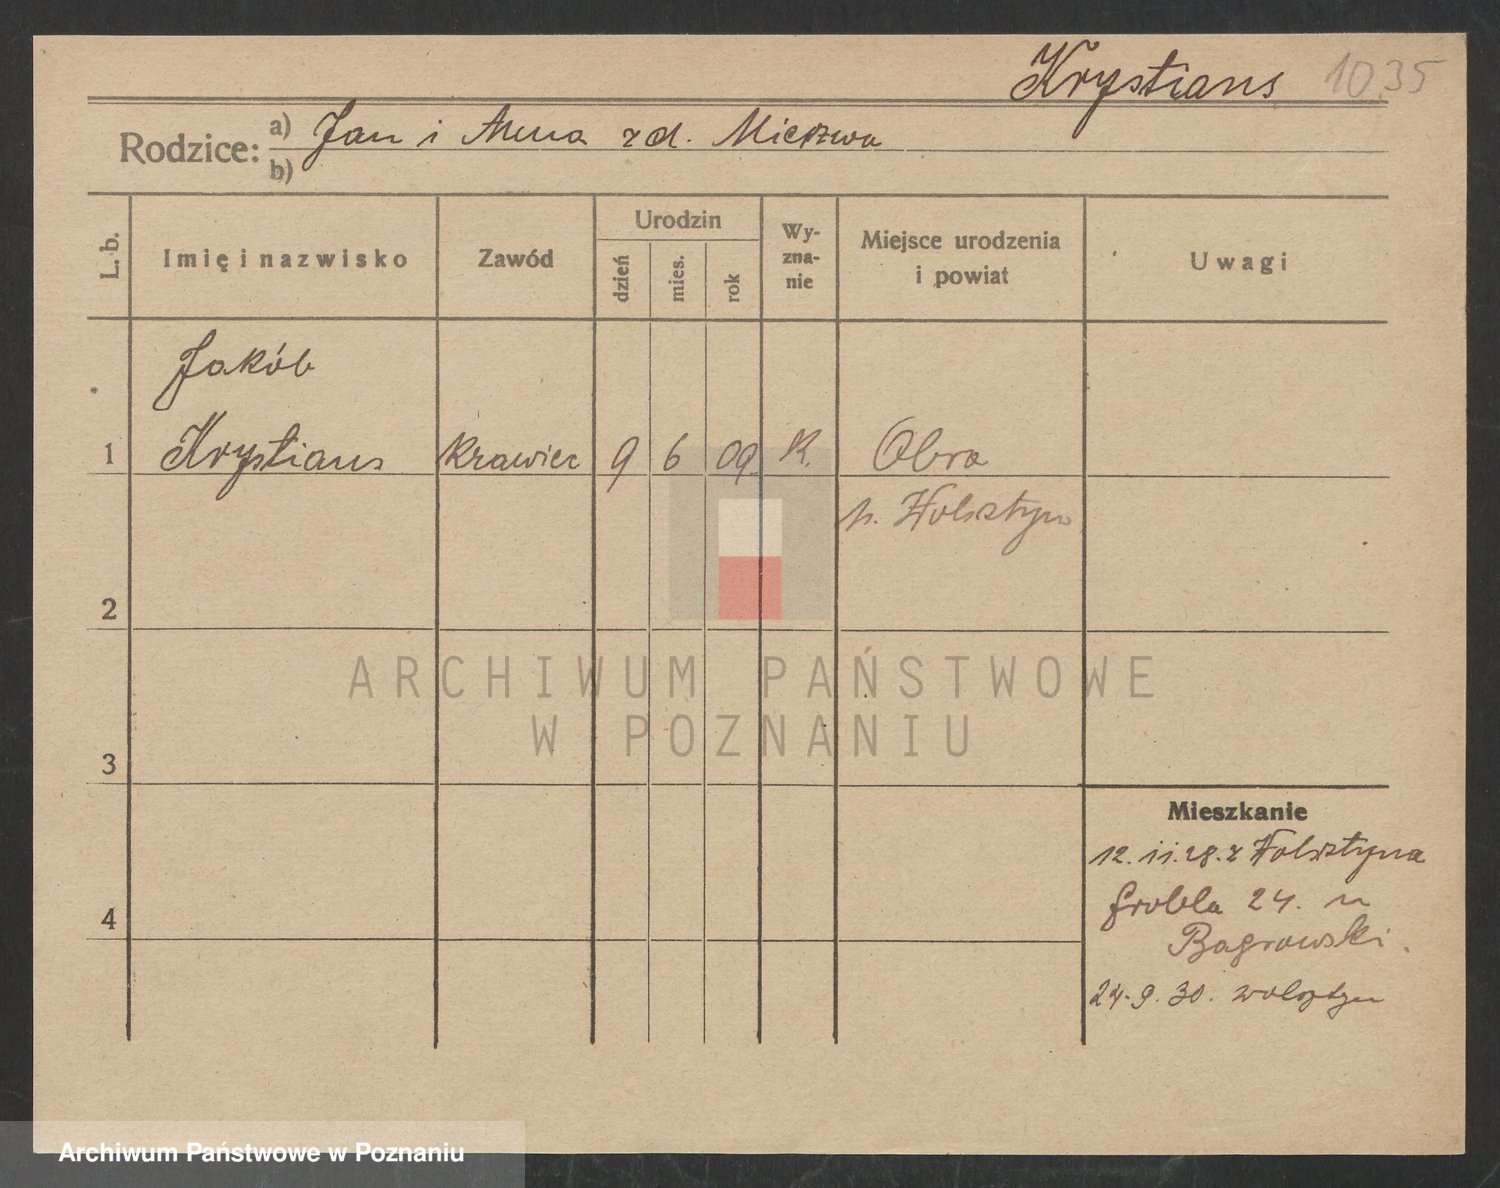 Krystians 1035
Rodzice: a) Jan i Anna zd. Mierzwa
b)
L. b. Imię i nazwisko Zawód Urodzin dzień mies. rok Wy-zna-nie Miejsce urodzenia i powiat Uwagi
Jakób
1 Krystians krawiec 9 6 09 K. Obra
p. Wolsztyn
2
ARCHIWUM PAŃSTWOWE
W POZNANIU
3
Mieszkanie
12.11.28. z Wolsztyna
4 Grobla 24. u
Bagrowski.
24.9.30. Wolsztyn
Archiwum Państwowe w Poznaniu